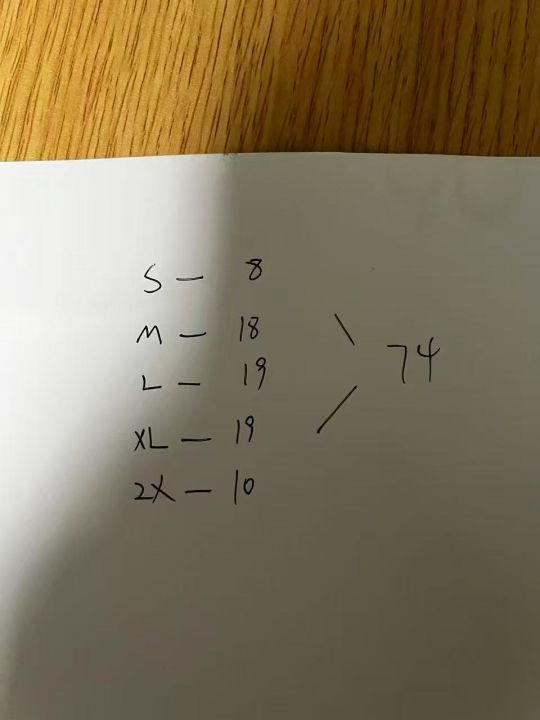 S — 8
M — 18
L — 19
XL — 19
2X — 10
74